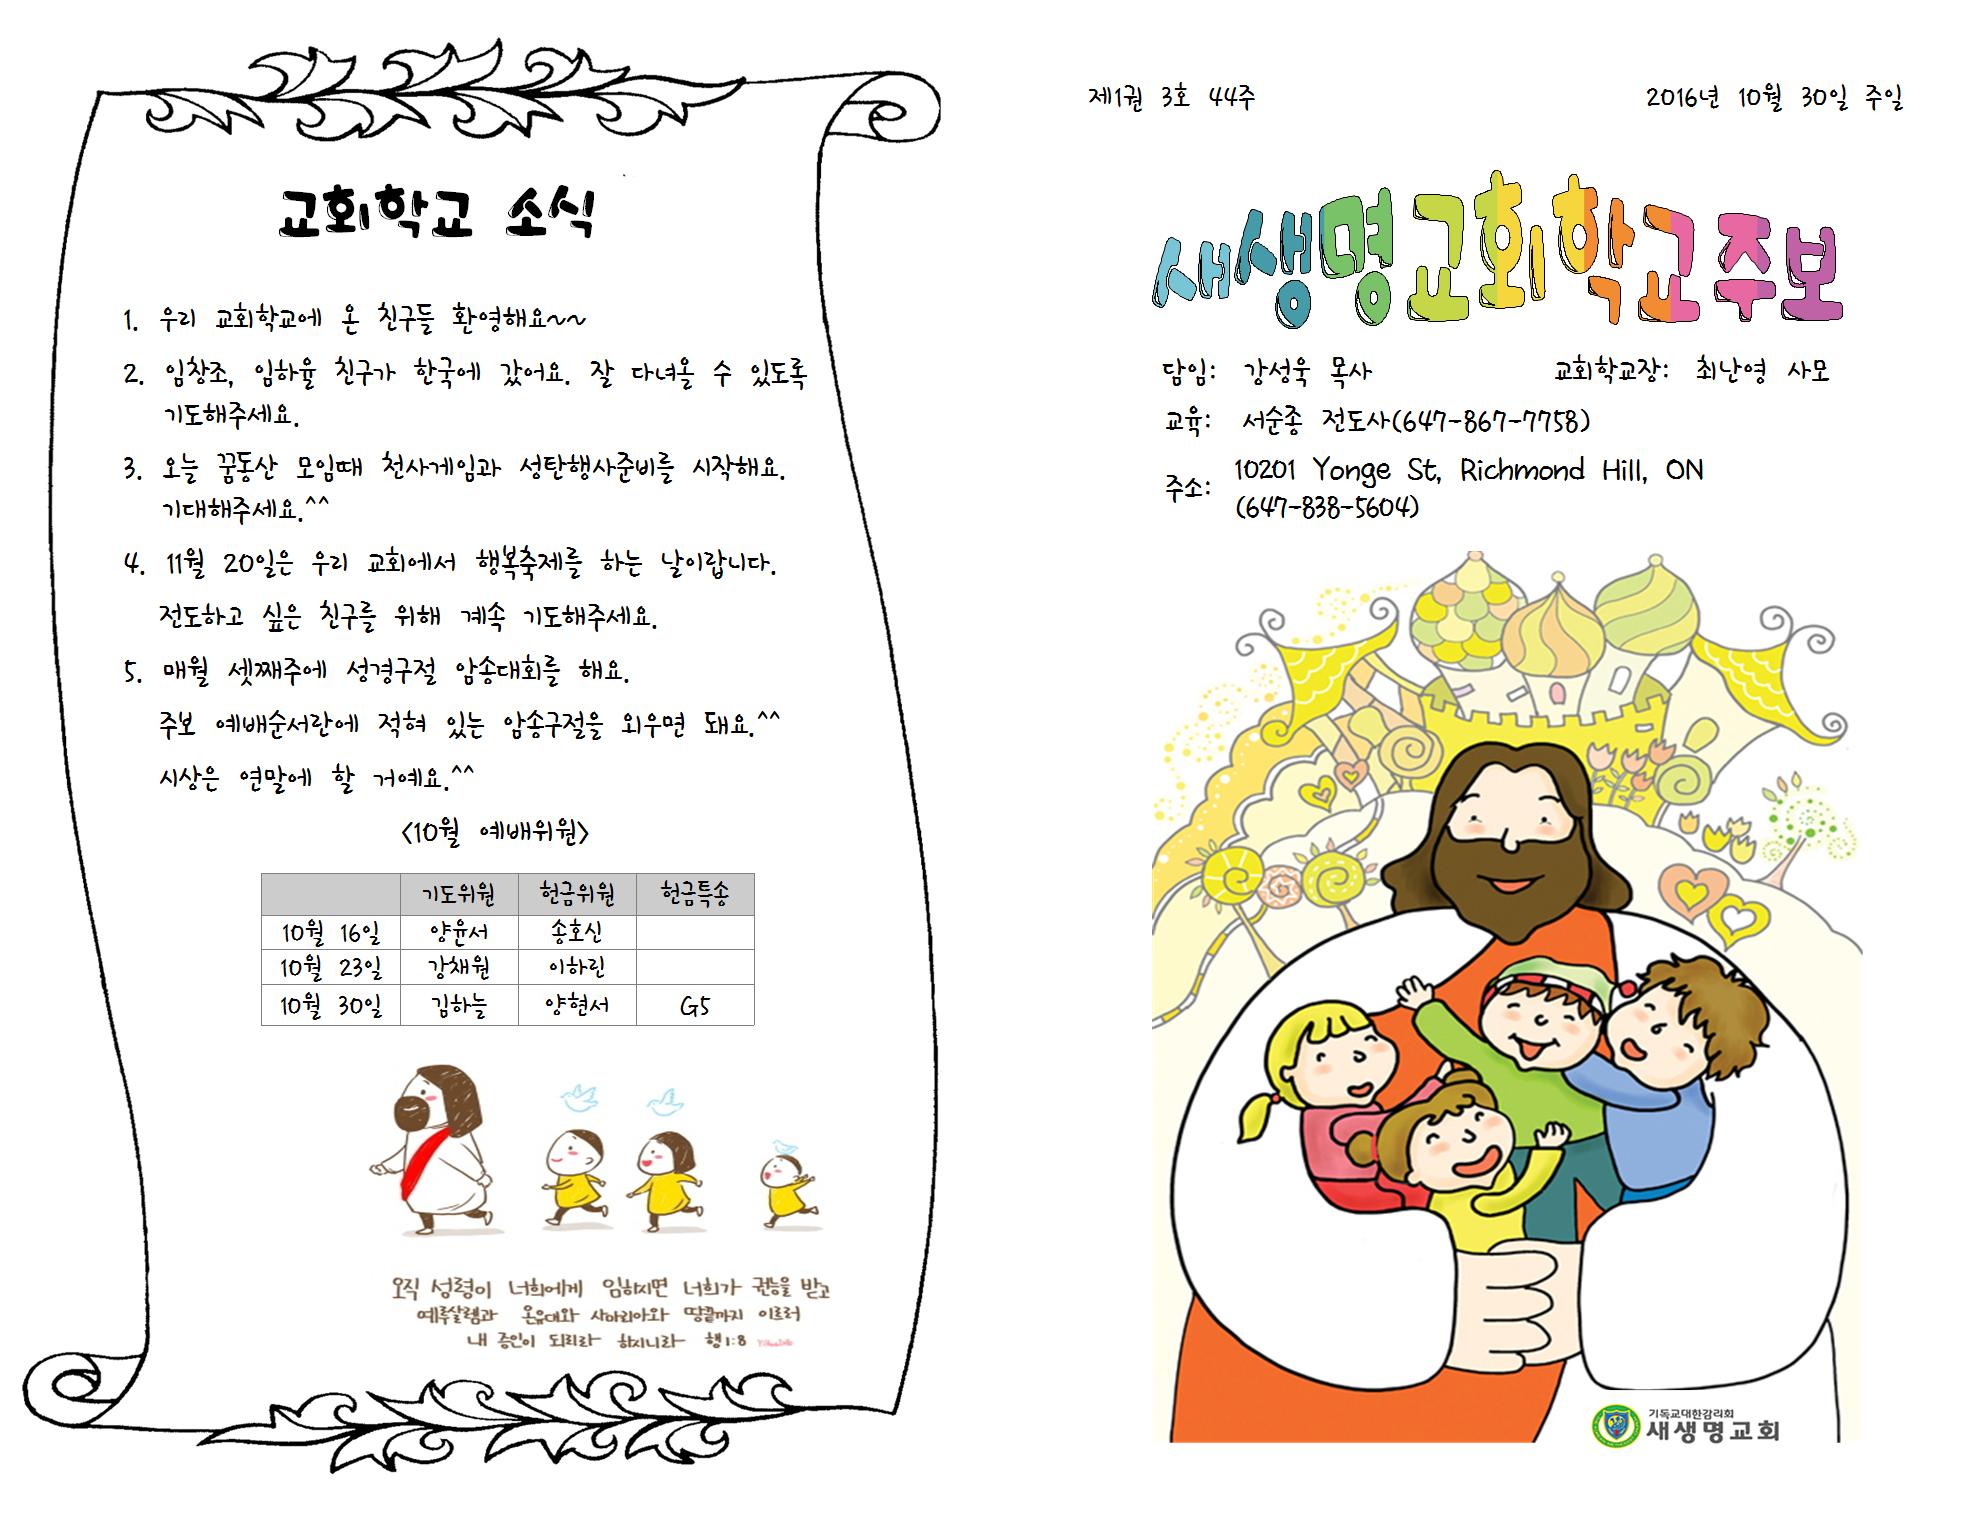 교회학교 소식
1. 우리 교회학교에 온 친구들 환영해요~~
2. 임창조, 임하율 친구가 한국에 갔어요. 잘 다녀올 수 있도록
기도해주세요.
3. 오늘 꿈동산 모임때 천사게임과 성탄행사준비를 시작해요.
기대해주세요.^^
4. 11월 20일은 우리 교회에서 행복축제를 하는 날이랍니다.
전도하고 싶은 친구를 위해 계속 기도해주세요.
5. 매월 셋째주에 성경구절 암송대회를 해요.
주보 예배순서란에 적혀 있는 암송구절을 외우면 돼요.^^
시상은 연말에 할 거예요.^^
<10월 예배위원>
기도위원 헌금위원 헌금특송
10월 16일 양윤서 송호신
10월 23일 강채원 이하린
10월 30일 김하늘 양현서 G5
오직 성령이 너희에게 임하시면 너희가 권능을 받고
예루살렘과 온유대와 사마리아와 땅끝까지 이르러
내 증인이 되리라 하시니라 행1:8
제1권 3호 44주 2016년 10월 30일 주일
새생명교회학교주보
담임: 강성욱 목사 교회학교장: 최난영 사모
교육: 서순종 전도사(647-867-7758)
주소: 10201 Yonge St, Richmond Hill, ON
(647-838-5604)
기독교대한감리회
새생명교회